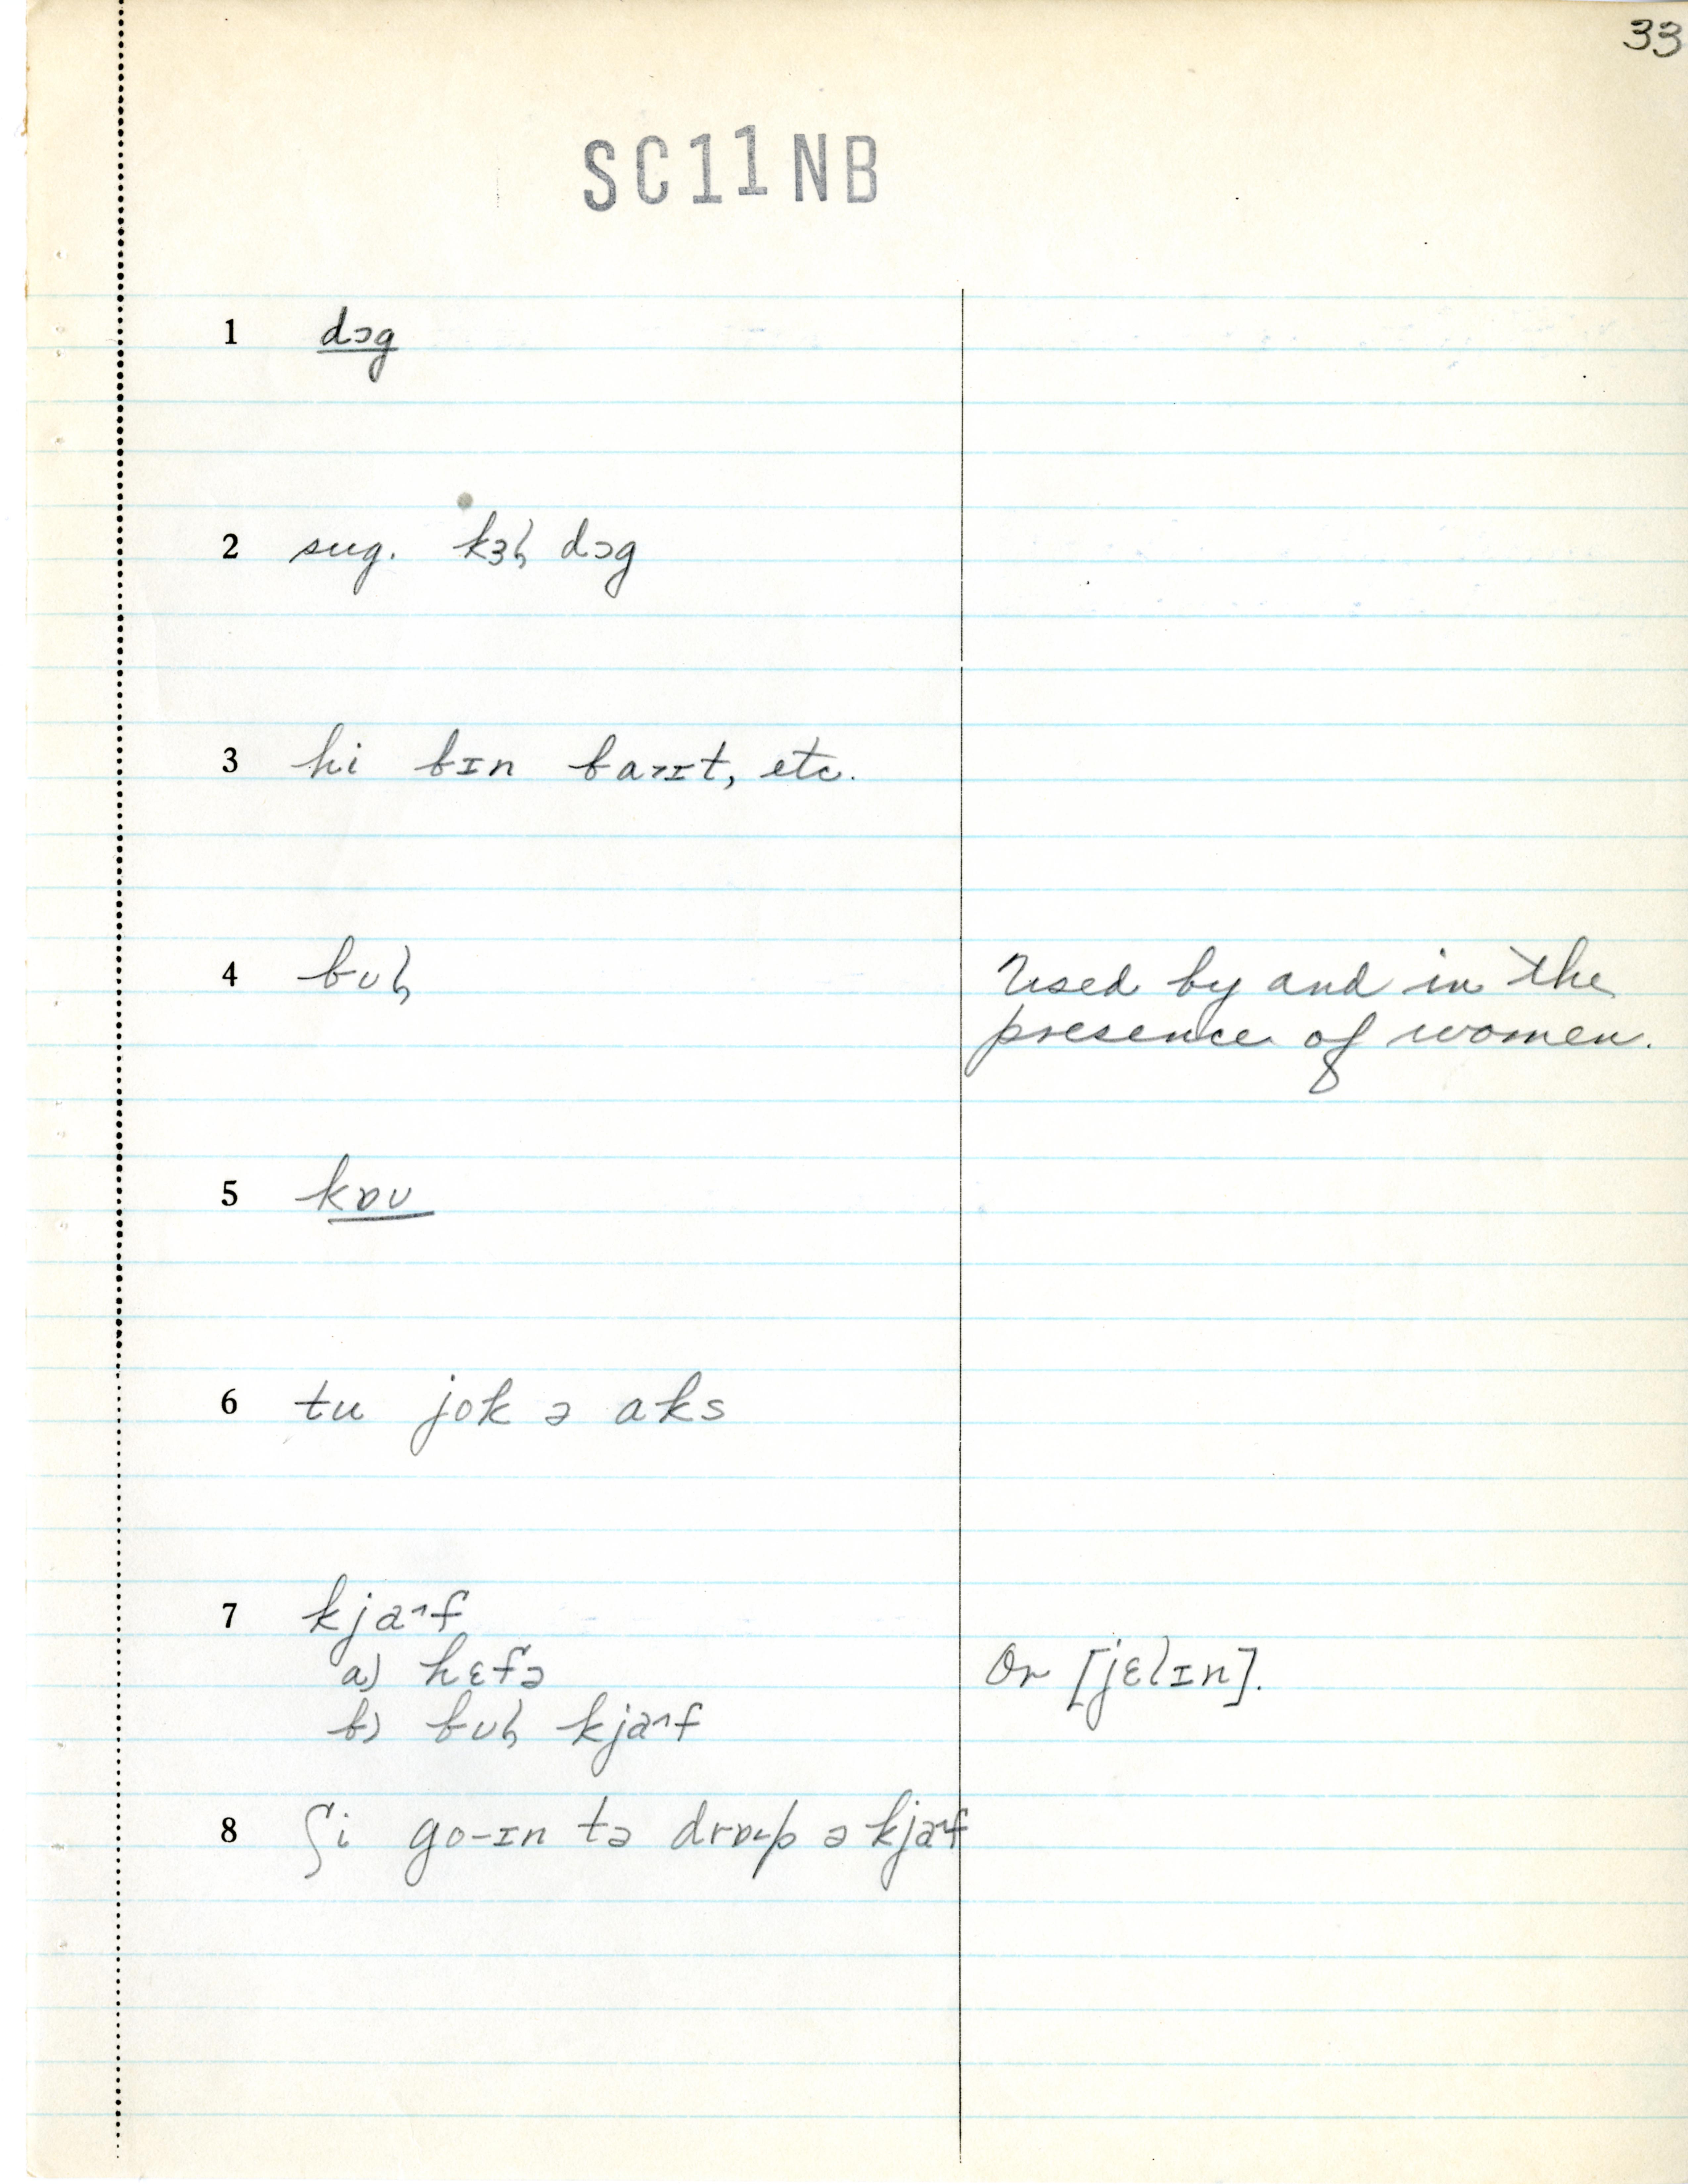 33
SC11NB
1 dɔg
2 sug. kɜɫ dɔg
3 hi bɪn baɪt, etc.
4 bʊɫ Used by and in the
presence of women.
5 kɒʊ
6 tu jok ə aks
7 kja˄f
a) hɛfə Or [jɛlɪn].
b) bʊɫ kja˄f
8 ʃi go-ɪn tə drɒp ə kja˄f